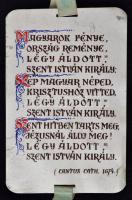 MAGYAROK FÉNYE,
ORSZÁG REMÉNYE,
LÉGY ÁLDOTT,
SZENT ISTVÁN KIRÁLY.
SZÉP MAGYAR NÉPED,
KRISZTUSHOZ VITTED,
LÉGY ÁLDOTT,
SZENT ISTVÁN KIRÁLY.
SZENT HITBEN TARTS MEG,
JÉZUSNÁL ÁLDJ MEG!
LÉGY ÁLDOTT,
SZENT ISTVÁN KIRÁLY.
(CANTUS CATH. 1674.)